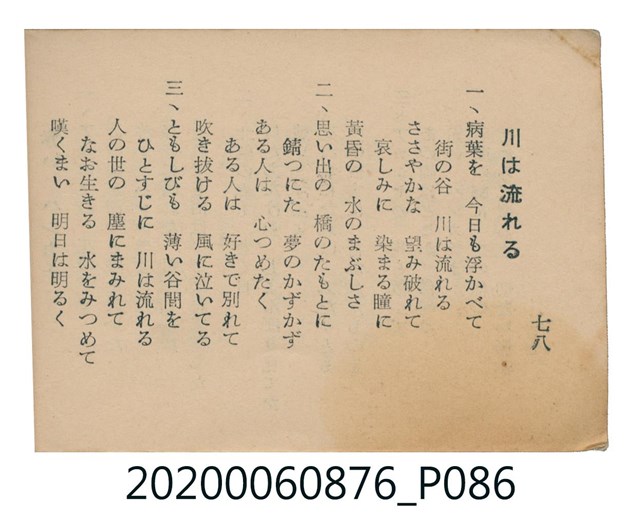 川は流れる
七八
一、病葉を 今日も浮かべて
街の谷 川は流れる
ささやかな 望み破れて
哀しみに 染まる瞳に
黃昏の 水のまぶしさ
二、思い出の 橋のたもとに
錆つにた 夢のかずかず
ある人は 心つめたく
ある人は 好きで別れて
吹き抜ける 風に泣いてる
三、ともしびも 薄い谷間を
ひとすじに 川は流れる
人の世の 塵にまみれて
なお生きる 水をみつめて
嘆くまい 明日は明るく
20200060876_P086